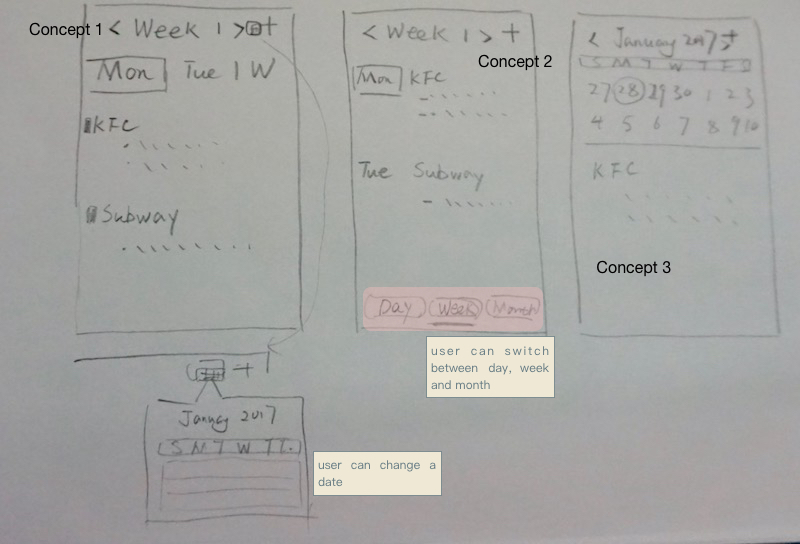 Concept 1
< Week 1 > +
Mon Tue 1 W
KFC
Subway
+
January 2017
S M T W T
user can change a
date
< Week 1 > +
Concept 2
Mon KFC
Tue Subway
Day Week Month
user can switch
between day, week
and month
< January 2017 > +
S M T W T F S
27 28 29 30 1 2 3
4 5 6 7 8 9 10
KFC
Concept 3